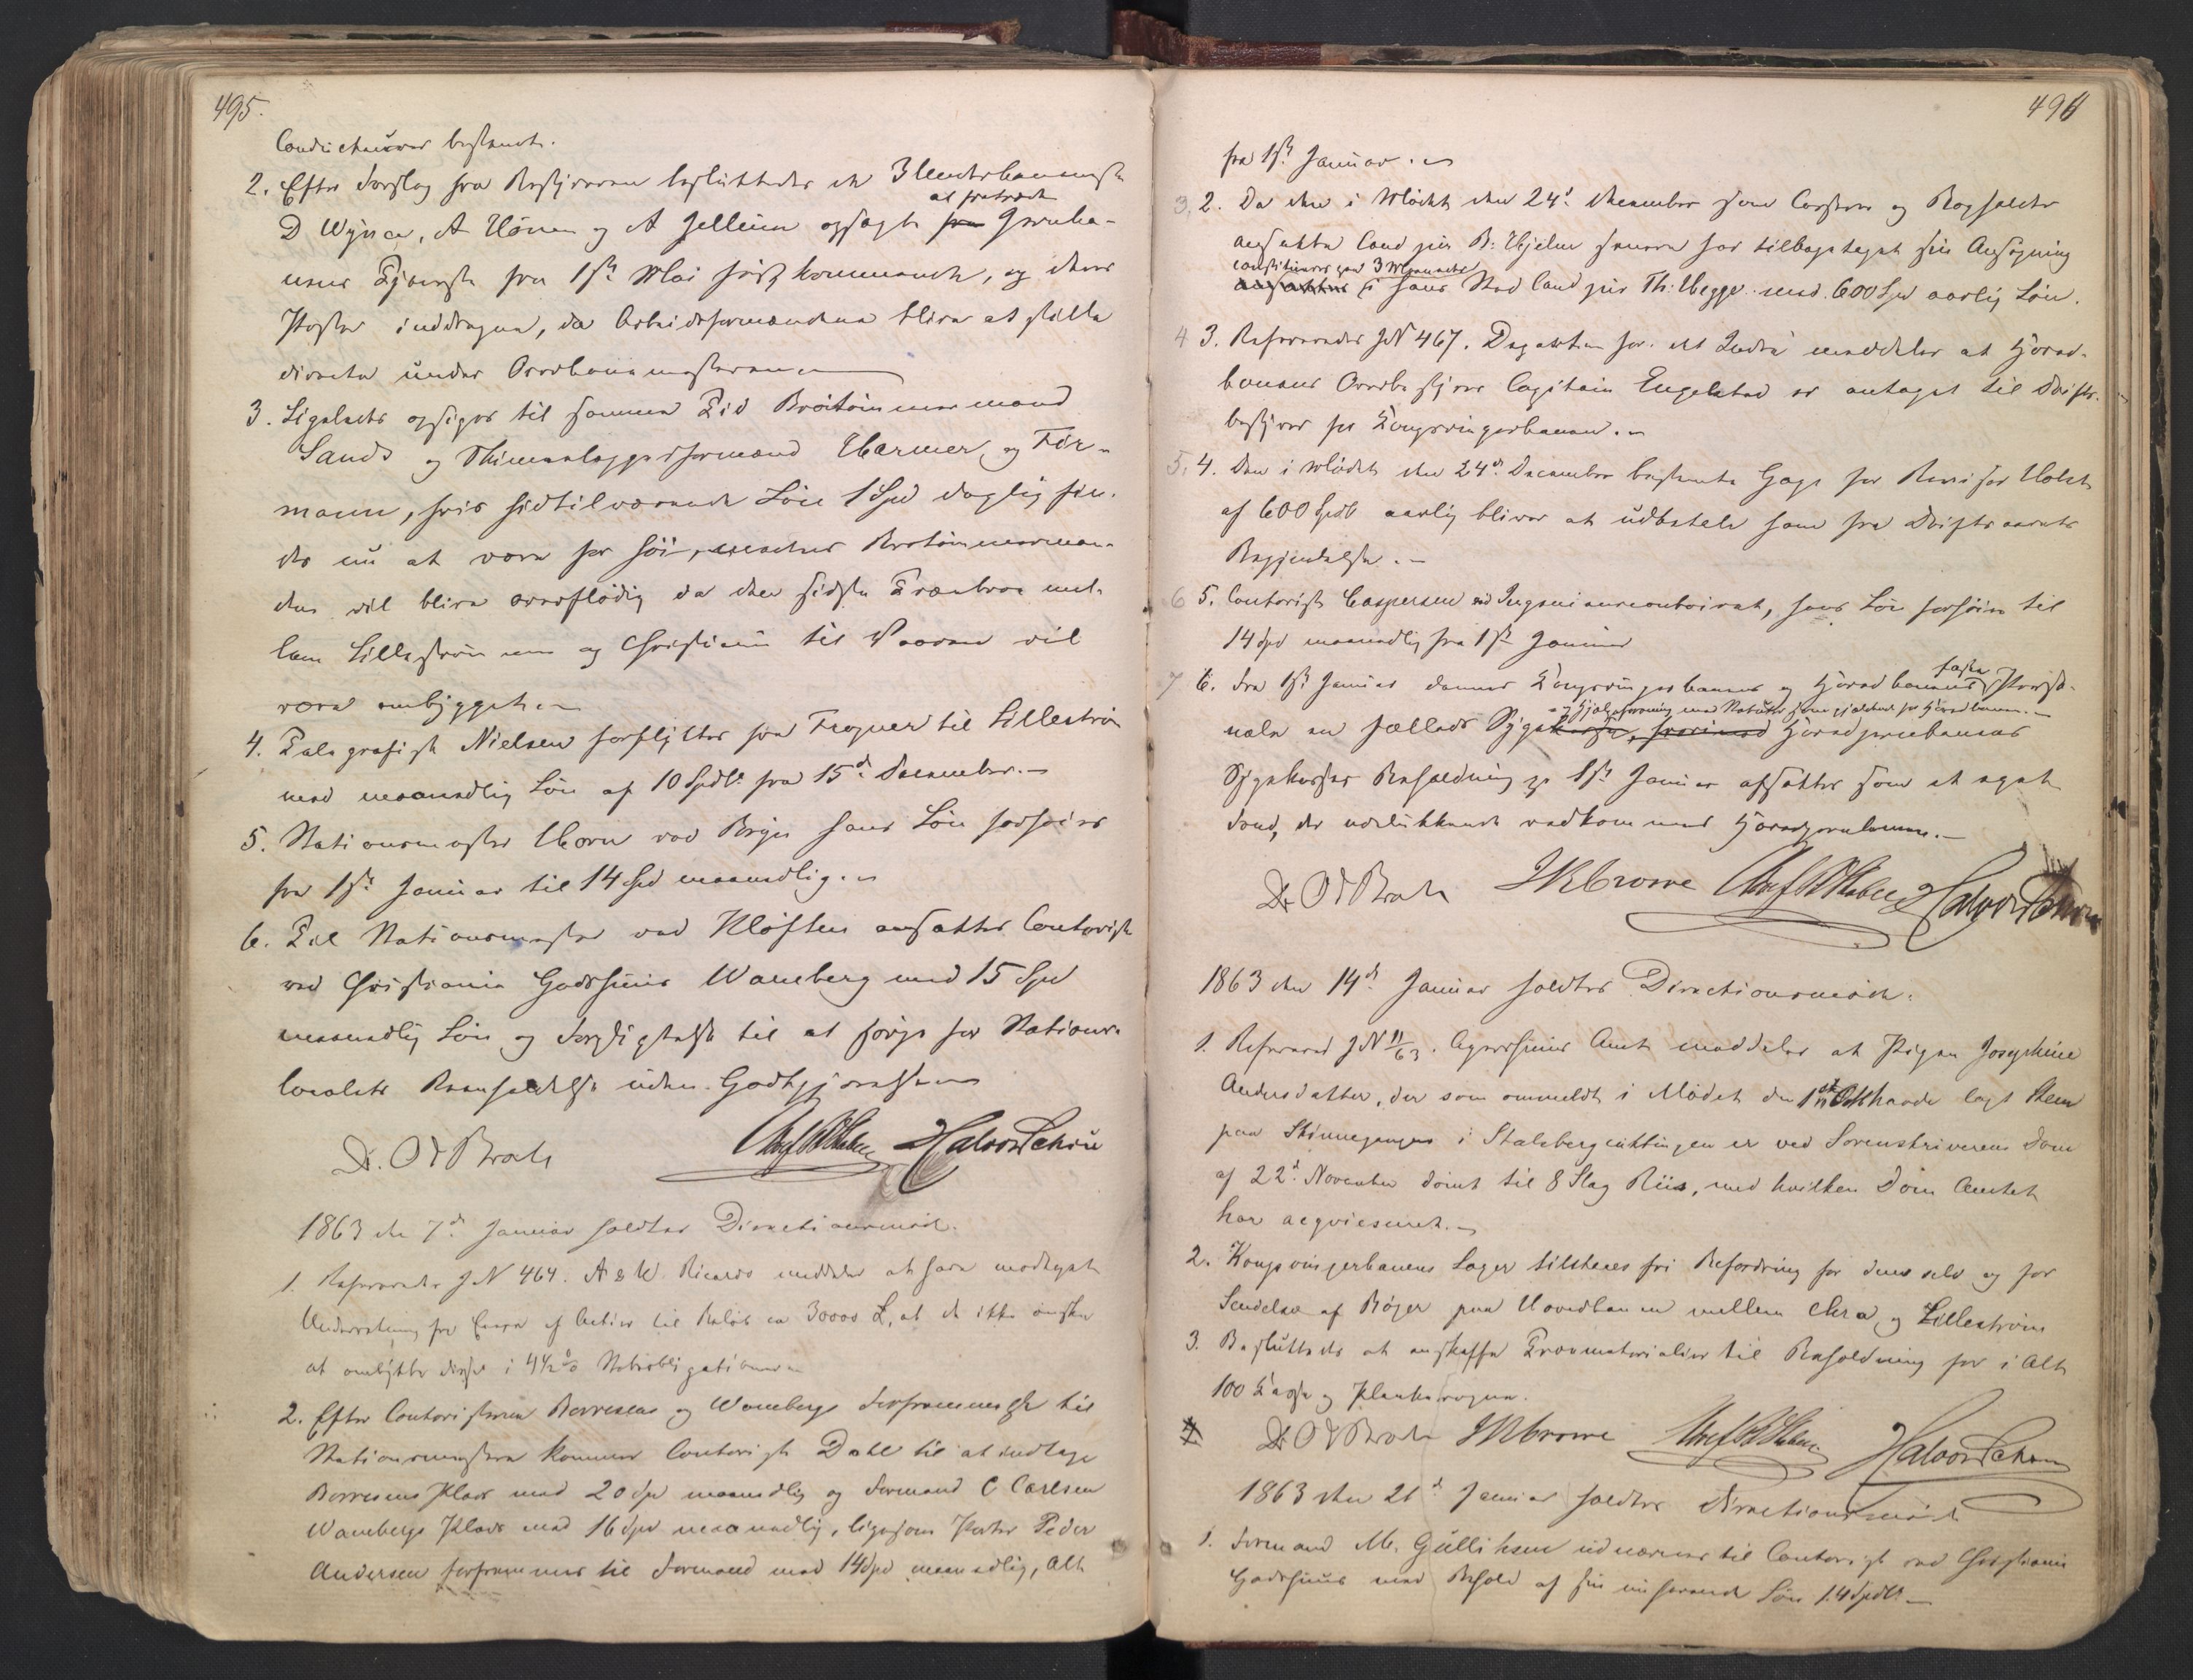 495.
Conducteurer bestemte.
2. Efter Forslag fra Bestyreren besluttedes de 3 Underbanemestre
at fratræde
D Wynce, A Hönen og A Jellum opsagte fra Jernba-
nens Tjeneste fra 1ste Mai förstkommende, og deres
Poster inddragne, da Arbeidsformændene bliver at stille
directe under Overbanemesteren
3. Ligeledes opsiges til samme Tid Brotömmermand
Sands og Formand Harmer, og For-
mann, hvis hidtilværende Lön 1 Spd daglig fin-
des nu at være for höi, medens Brotömmerman-
den vil blive overflödig da den sidste Træbroe mel-
lem Lilleström og Christiania til Vaaren vil
være ombygget.
4. Telegrafist Nielsen forflyttes fra Frogner til Lilleström
med maanedlig Lön af 10 Spdlr fra 15de December.
5. Stationsmester Horn ved Bryn hans Lön forhöies
fra 1ste Januar til 14 Spd maanedlig.
6. Til Stationsmester ved Klöften ansættes Contorist
ved Christiania Godshuus Waneberg med 15 Spd
maanedlig Lön og Forpligtelse til at sörge for Stations-
locolets Reenholdelse uden Godtgjörelse
Dr. O J Broch Halvor Schou
1863 den 7de Januar holdtes Directionsmöde.
1. Refereredes J N 464. A & W. Ricardo meddeler at have modtaget
Underretning fra af Actier til Belöb ca 30000 £, at de ikke önsker
at ombytte disse i 4½ % Statsobligationer
2. Efter Contoristerne Borresens og Wanebergs Forfremmelse til
Stationsmestere kommer Contorist Dahl til at indtage
Borresens Plads med 20 Spd maanedlig og Formand C Carlsen
Wanebergs Plads med 16 Spd maanedlig, ligesom Porter Peder
Andersen forfremmes til Formand med 14 Spd maanedlig, Alt
496
fra 1ste Januar.
3. 2. Da den i Mödet den 24de December som Casserer og Bogholder
ansatte Cand jur B. Hjelm senere har tilbagetaget sin Ansögning
constitueres paa 3 Maaneder
ansættes i hans Sted Cand jur Th. Hegge med 600 Spd aarlig Lön.
4 3. Refereredes J N 467. Departem for det Indre meddeler at Hoved-
banens Overbestyrer Capitain Engelstad er antaget til Drifts-
bestyrer for Kongsvingerbanen.
5. 4. Den i Mödet den 24de December bestemte Gage for Revisor Holst
af 600 Spdlr aarlig bliver at udbetale ham fra Driftsaarets
Begyndelse.
6 5. Contorist Caspersen ved Ingenieurcontoiret, hans Lön forhöies til
14 Spd maanedlig fra 1ste Januar
7 6. Fra 1ste Januar danner Kongsvingerbanens og Hovedbanens faste Perso-
og Hjælpeforening med Statuter som gjældende for Hovedbanen.
nale en fælleds Sygekasse, hvorimod Hovedjernbanens
Sygekasses Beholdning pr 1ste Januar afsættes som et eget
Fond, der udelukkende vedkommer Hovedjernbanen.
Dr. O J Broch J R Crowe Halvor Schou
1863 den 14de Januar holdtes Directionsmöde.
1. Refereret J N 11/63. Agershuus Amt meddeler at Pigen Josephine
Andersdatter, der som ommeldt i Mödet den havde lagt Steen
paa Skinnegangen i Stalsbergcuttingen er ved Sorenskriverens Dom
af 22de November dömt til 8 Slag Riis, med hvilken Dom Amtet
har acqviesceret.
2. Kongsvingerbanens Læger tilstaaes fri Befordring for dem selv og for
Sendelse af Böger paa Hovedbanen mellem Chra og Lilleström
3. Besluttedes at anskaffe Træmaterialier til Beholdning for i Alt
100 Kasse og Plankevogne.
4 Dr O J Broch J R Crowe Halvor Schou
1863 den 21de Januar holdtes Directionsmöde
1. Formand M. Gullihsen udnævnes til Contorist ved Christiania
Godshuus med Behold af sin nuhavende Lön 14 Spdlr